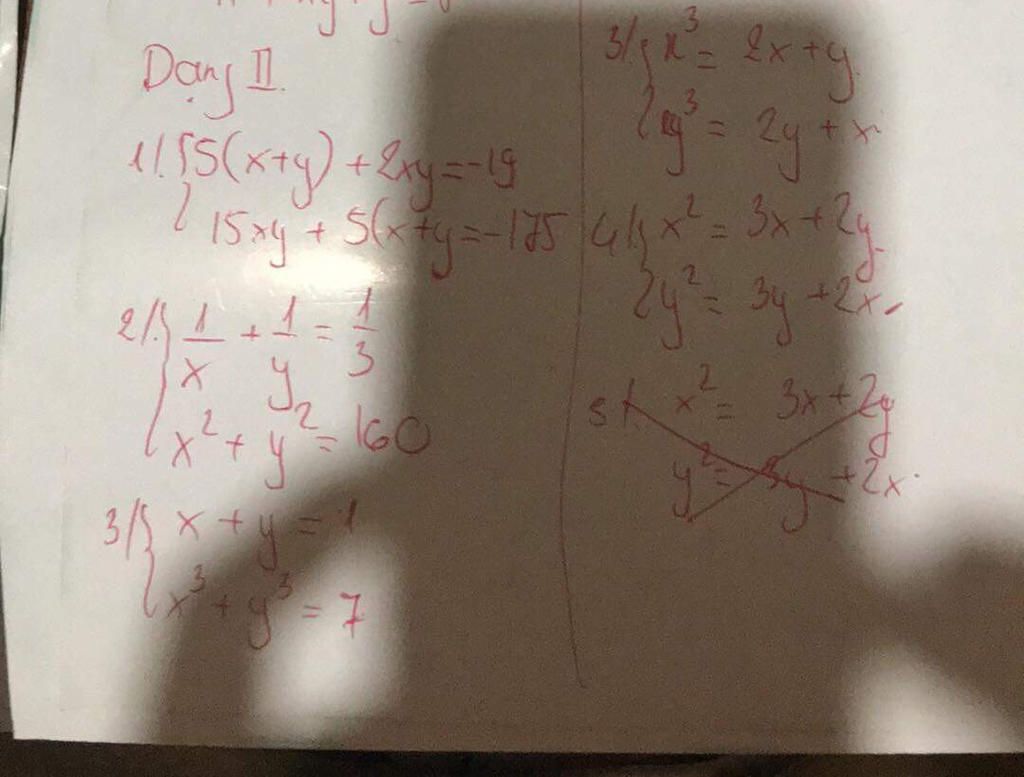 Dạng II.
1/. { 5(x+y) + 2xy = -19
15xy + 5(x+y = -175
2/. { 1/x + 1/y = 1/3
x² + y² = 160
3/ { x + y = 1
x³ + y³ = 7
3/. { x³ = 2x + y
y³ = 2y + x
4/. { x² = 3x + 2y
y² = 3y + 2x
5/. x² = 3x + 2y
y² = 3y + 2x